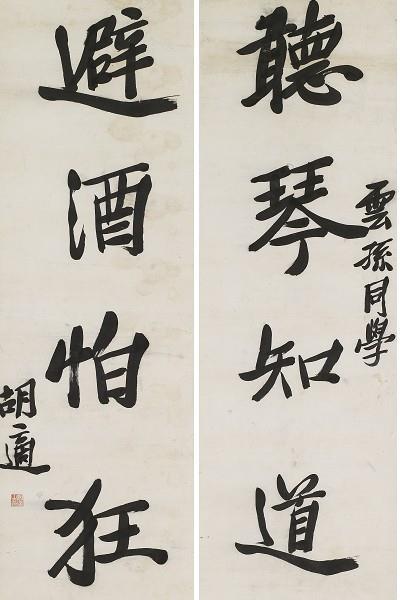 雲孫同學
聽琴知道
避酒怕狂
胡適